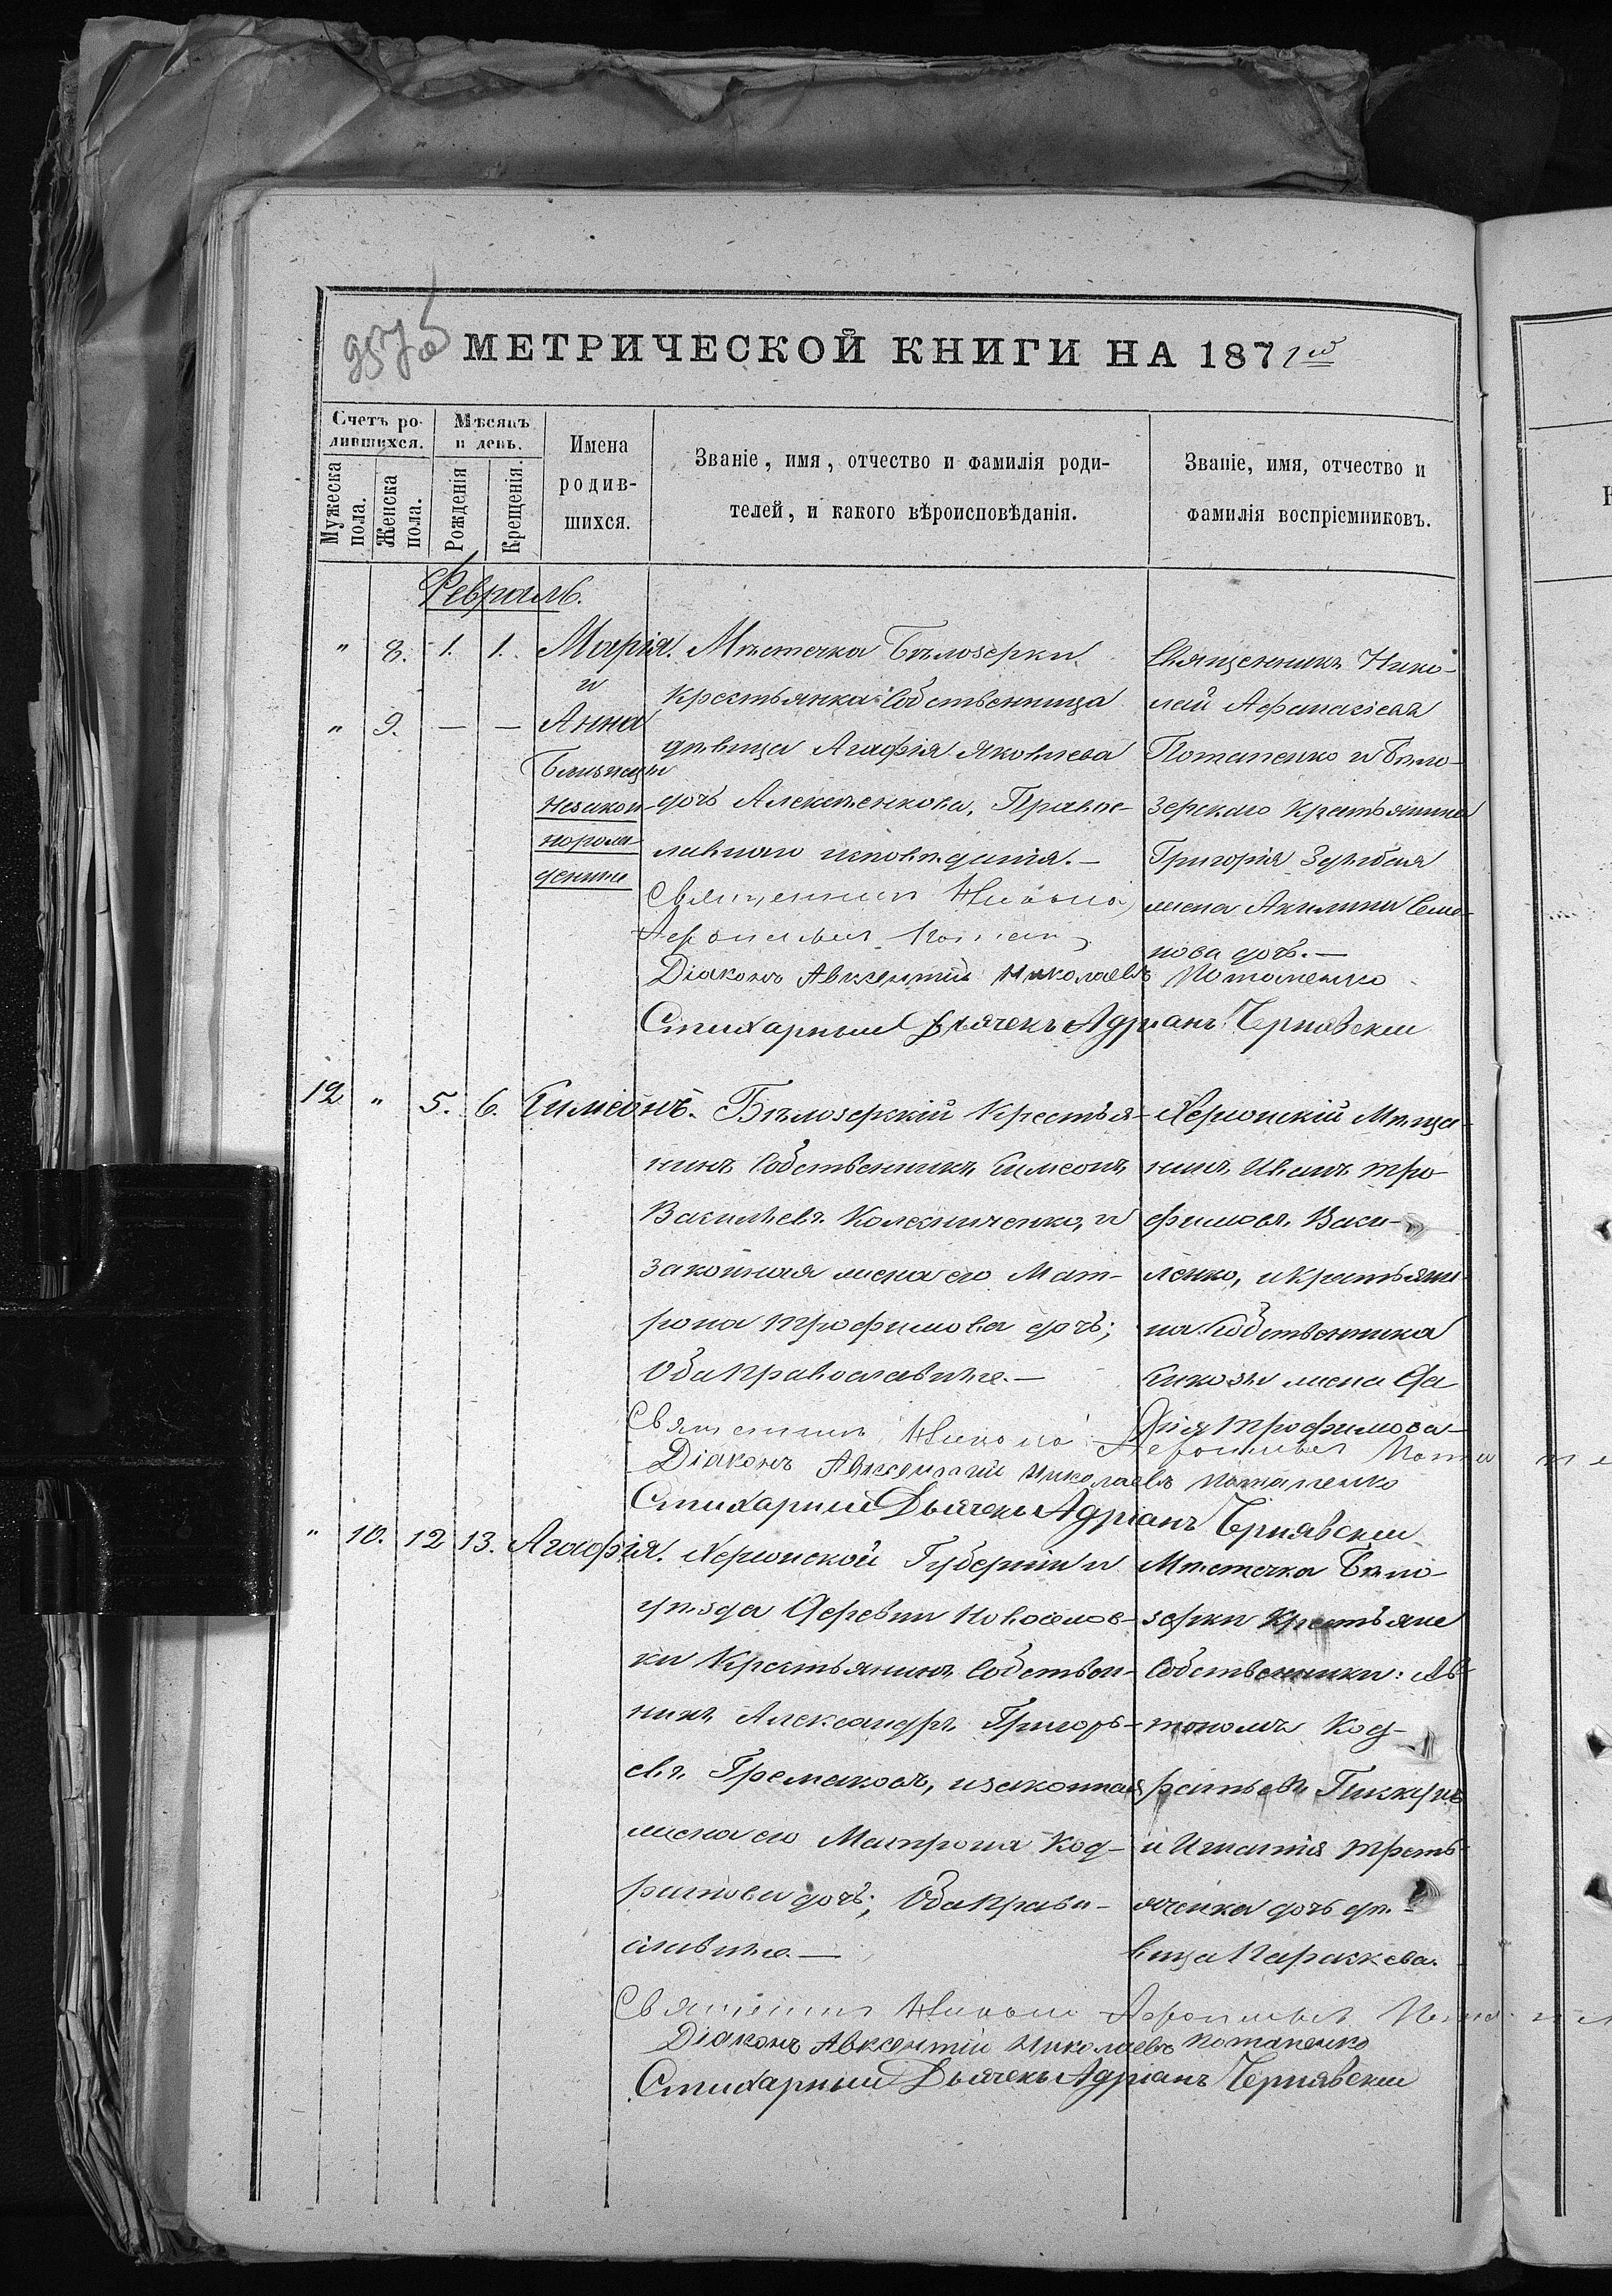 МЕТРИЧЕСКОЙ КНИГИ НА 1871й
Счетъ ро-
дившихся.
Мужеска пола.
Женска пола.
Мѣсяцъ
и день.
Рожденія
Крещенія.
Имена
родив-
шихся.
Званіе, имя, отчество и фамилія роди-
телей, и какого вѣроисповѣданія.
Званіе, имя, отчество и
фамилія воспріемниковъ.
Февраль.
" 8. 1. 1. Марія.
и
" 9. — — Анна
Близнецы
незакон-
норож-
денные
Мѣстечка Бѣлозерки
крестьянка Собственница
дѣвица Агафія Яковлева
дочь Алексѣенкова, Правос-
лавнаго исповѣданія.—
Священникъ Нико-
лай Афанасіевъ
Потапенко и Бѣло-
зерскаго Крестьянина
Григорія
жена Акилина Семе-
нова дочь.—
Священникъ Николай
Діаконъ Авксентій Николаевъ Потапенко
Стихарный Дьячекъ Адріанъ Чернявскій
12 " 5. 6. Симеонъ.
Бѣлозерскій Крестья-
нинъ Собственникъ Симеонъ
Васильевъ Колесниченко, и
законная жена его Мат-
рона Трофимова дочь;
Оба Православные.—
Херсонскій Мѣща-
нинъ Иванъ Тро-
фимовъ Васи-
ленко, и Крестьяни-
на Собственника
жена Ѳа
Трофимова
Священникъ Николай Афанасьевъ Пота
Діаконъ Авксентій Николаевъ Потапенко
Стихарный Дьячекъ Адріанъ Чернявскій
" 10. 12 13. Агафія.
Херсонской Губерніи и
уѣзда Деревни Новоселов-
ки Крестьянинъ Собствен-
никъ Александръ Григорь-
евъ Гремаковъ, и законная
жена его Матрона Код-
ратова дочь; Оба Право-
славные.—
Мѣстечка Бѣло-
зерки Крестьяне
Собственники: Ав-
тономъ Код-
ратьевъ
и Игнатія Треть-
яченка дочь дѣ-
вица Параскева.
Священникъ Николай Афанасьевъ
Діаконъ Авксентій Николаевъ Потапенко
Стихарный Дьячекъ Адріанъ Чернявскій